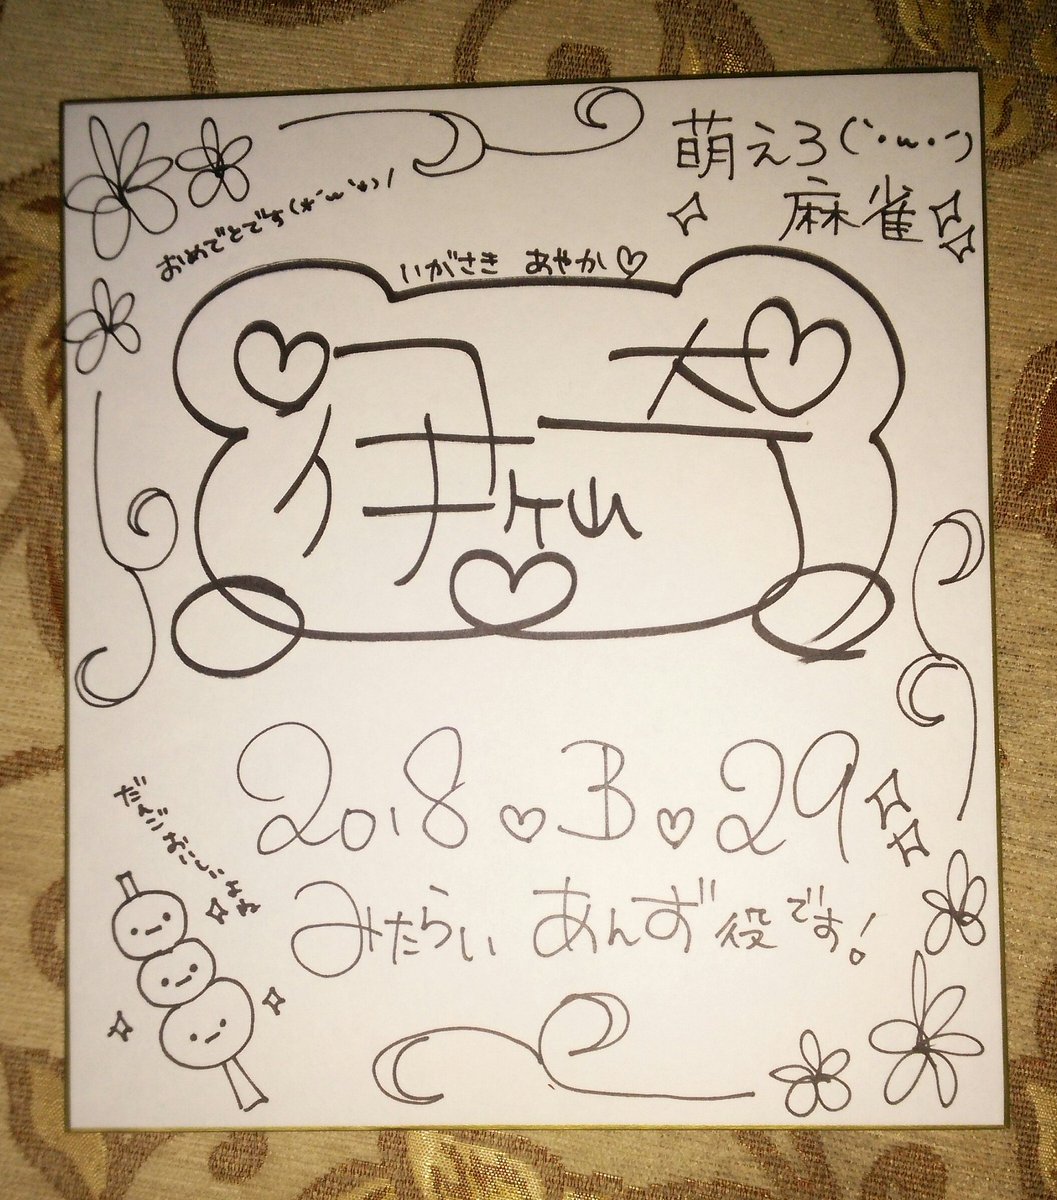 萌えろ(`・ω・´)
麻雀
おめでとです(*´ω`*)ﾉ
いがさき あやか♡
伊ヶ崎
2018♡3♡29
みたらい あんず役です!
だんごおいしいよね